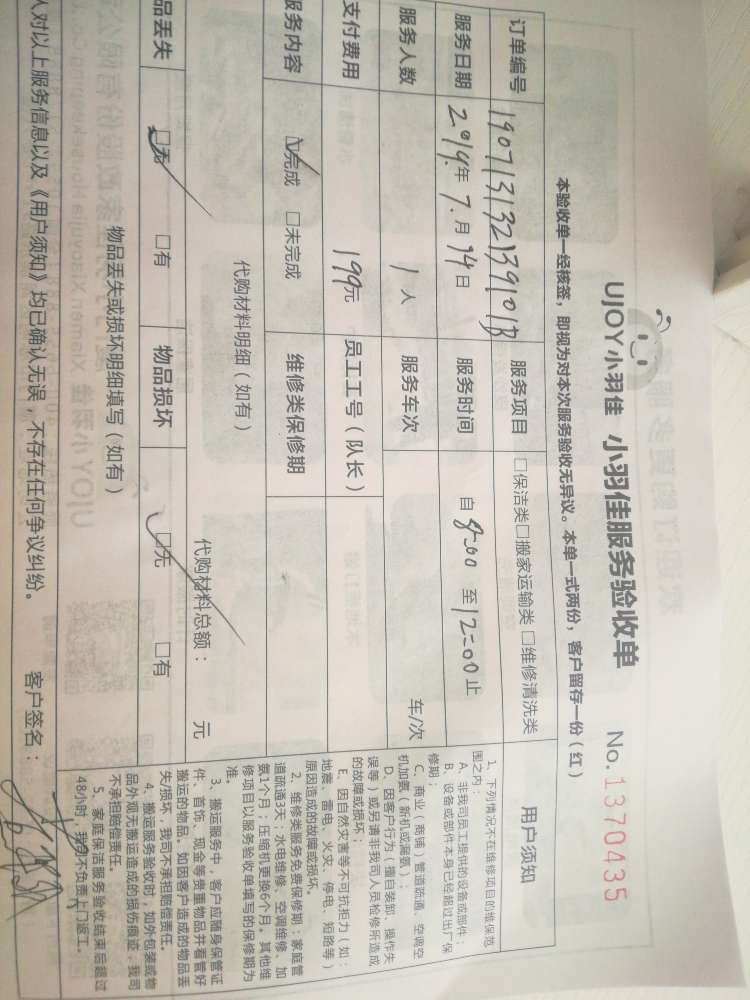 UJOY小羽佳 小羽佳服务验收单 No. 1370435
本验收单一经核签，即视为对本次服务验收无异议。本单一式两份，客户留存一份（红）
订单编号 服务项目 □保洁类□搬家运输类 □维修清洗类
服务日期 2019年 7月 14日 服务时间 自 8:00 至 12:00 止
服务人数 1 人 服务车次 车/次
支付费用 199元 员工工号（队长）
服务内容 ☑完成 □未完成 维修类保修期
代购材料明细（如有） 代购材料总额： 元
品丢失 ☑无 □有 物品损坏 ☑无 □有
物品丢失或损坏明细填写（如有）
人对以上服务信息以及《用户须知》均已确认无误，不存在任何争议纠纷。 客户签名：
用户须知
1、下列情况不在维修项目的维保范
围之内：
A、非我司员工提供的设备或部件；
B、设备或部件本身已经超过出厂保
修期；
C、商业（商铺）管道疏通、空调空
机加氨（新机或漏氨）；
D、因客户行为（擅自装卸、操作失
误等）或另请非我司人员检修所造成
的故障或损坏；
E、因自然灾害等不可抗拒力（如：
地震、雷电、火灾、停电、短路等）
原因造成的故障或损坏。
2、维修类服务免费保修期：家庭管
道疏通3天；水电维修、空调维修、加
氨1个月；压缩机更换6个月。其他维
修项目以服务验收单填写的保修期为
准。
3、搬运服务中，客户应随身保管证
件、首饰、现金等贵重物品并看管好
搬运的物品。如因客户造成的物品丢
失/损坏，我司不承担赔偿责任。
4、搬运服务验收时，如外包装或物
品外观无搬运造成的损伤痕迹，我司
不承担赔偿责任。
5、家庭保洁服务验收结束后超过
48小时，我司不负责上门返工。